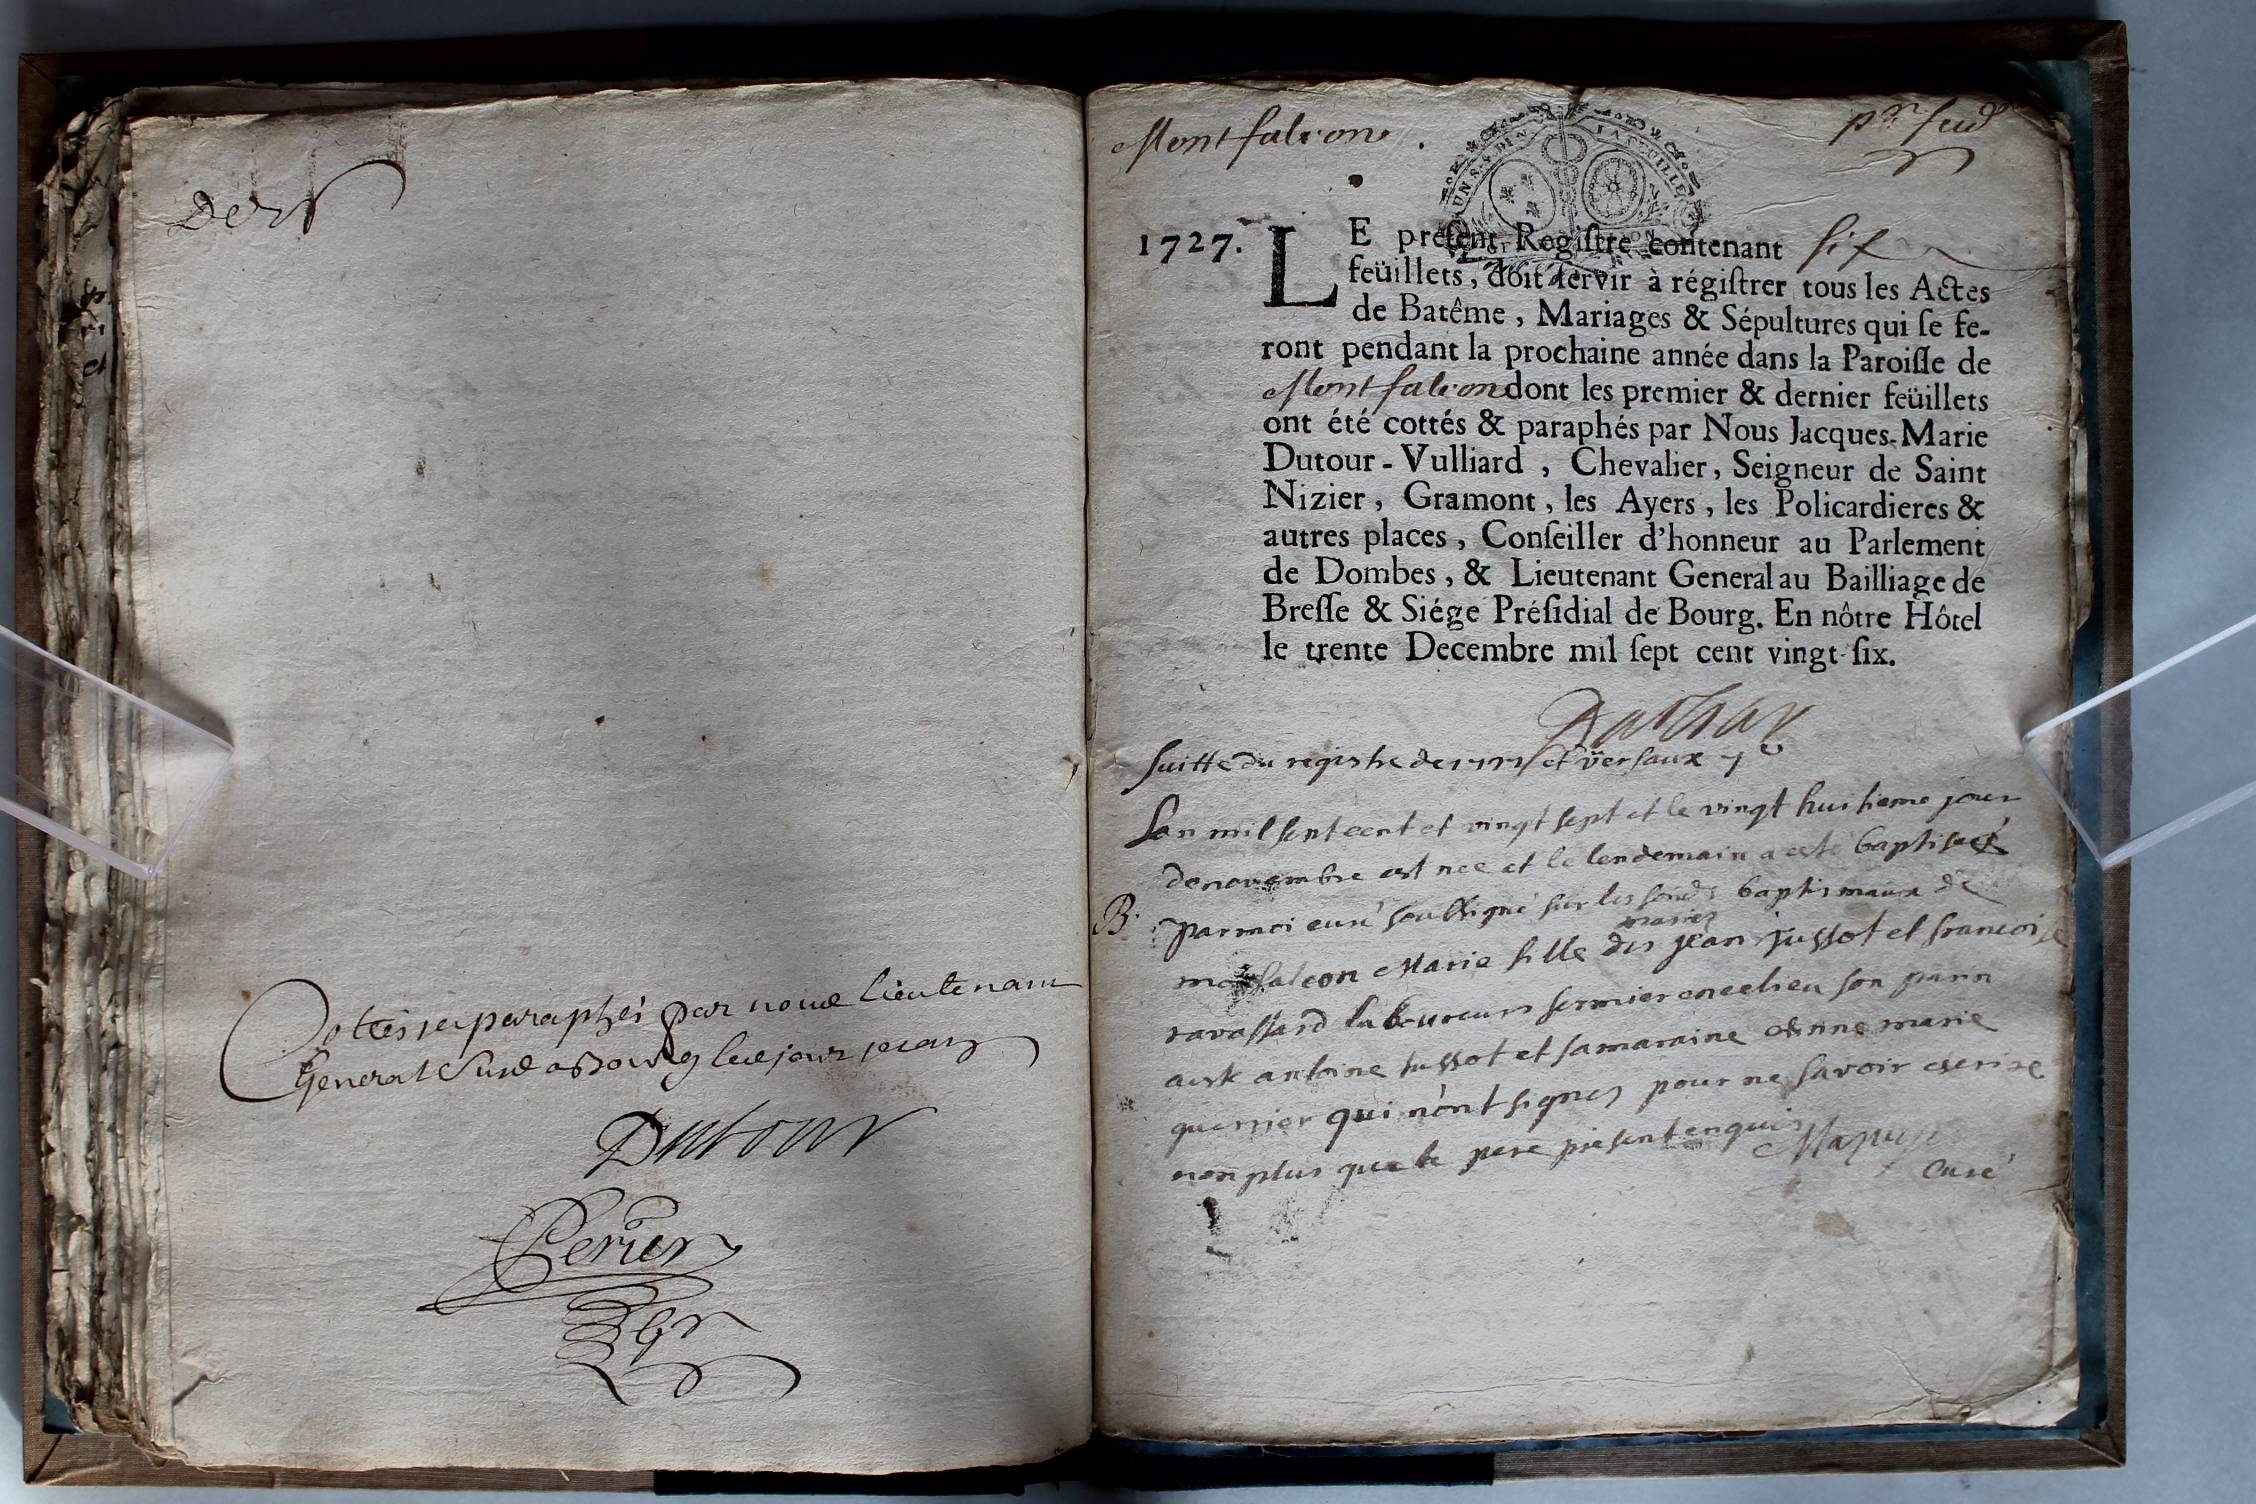 Der
Cottés et paraphés par nous Lieutenant
General Susd a Bourg les jour et an
Dutour
Perier
Montfalcon.
UN S. 4 DEN. LA FEUILLE
1727. LE présent Regiſtre contenant six
feüillets, doit ſervir à régiſtrer tous les Actes
de Batême, Mariages & Sépultures qui ſe fe-
ront pendant la prochaine année dans la Paroiſſe de
Montfalcon dont les premier & dernier feüillets
ont été cottés & paraphés par Nous Jacques-Marie
Dutour-Vulliard, Chevalier, Seigneur de Saint
Nizier, Gramont, les Ayers, les Policardieres &
autres places, Conſeiller d'honneur au Parlement
de Dombes, & Lieutenant General au Bailliage de
Breſſe & Siége Préſidial de Bourg. En nôtre Hôtel
le trente Decembre mil ſept cent vingt-ſix.
suitte du registre de 1727 et
Lan mil sept cent et vingt sept et le vingt huitieme jour
de novembre est nee et le lendemain a esté baptiseé
B. par moi curé soubsigné sur les fonds baptismaux de
monfalcon Marie fille des mariez jean jussot et francoise
ravassard laboureurs fermier en ce lieu son parn
a esté antoine jussot et sa maraine anne marie
guerrier qui n'ont signez pour ne savoir escrire
non plus que le pere present enquis
Curé